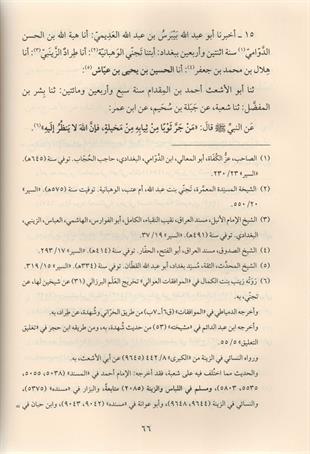 ١٥ - أخبرنا أبو عبد الله بَيْبَرْسُ بن عبد الله العَدِيمِيّ: أنا هبة الله بن الحسن
الدَّوَّامي(١) سنة اثنتين وأربعين ببغداد: أبتنا تَجَنِّي الوَهبانيّة(٢): أنا طِرادٌ الزَّيْنَبيّ(٣): أنا
هلال بن محمد بن جعفر(٤): أنا الحسين بن يحيى بن عيّاش(٥):
ثنا أبو الأشعث أحمد بن المِقدام سنة سبع وأربعين ومائتين: ثنا بشر بن
المفضّل: ثنا شعبة، عن جَبَلَة بن سُحَيم، عن ابن عمر:
عن النبيِّ ﷺ قال: «مَنْ جَرَّ ثَوْبًا مِنْ ثِيابِه مِنْ مَخِيلَةٍ، فإنَّ اللهَ لا يَنظُرُ إِلَيهِ»(٦).
(١) الصاحب، عزُّ الكُفاة، أبو المعالي، ابن الدَّوَّامي، البغدادي، حاجب الحُجّاب. توفي سنة (٦٤٥هـ).
«السير» ٢٣/ ٢٣٠.
(٢) الشيخة المسنِدة المعمَّرة، تَجَنِّي بنت عبد الله، أم عتب، الوهبانية. توفيت سنة (٥٧٥هـ). «السير»
٢٠/ ٥٥٠.
(٣) الشيخ الإمام الأنبل، مسند العراق، نقيب النقباء، الكامل، أبو الفوارس، الهاشمي، العباسي، الزينبي،
البغدادي. توفي سنة (٤٩١هـ). «السير» ١٩/ ٣٧.
(٤) الشيخ الصدوق، مسند العراق، أبو الفتح، الحفّار. توفي سنة (٤١٤هـ). «السير» ١٧/ ٢٩٣.
(٥) الشيخ المحدِّث، الثقة، مُسنِد بغداد، أبو عبد الله القطّان. توفي سنة (٣٣٤هـ). «السير» ١٥/ ٣١٩.
(٦) رَوَتْه زينب بنت الكمال في «الموافقات العوالي» تخريج العَلَم البرزالي (٣١) عن شيخين لها، عن
تجنّي، به.
وأخرجه الدمياطي في «الموافقات» من طريق الحرّاني وشُهدة، عن طِراد، به.
وأخرجه ابن عبد الدائم في «مشيخته» (٥٣) من حديث شُهدة، به، ومن طريقه ابن حجر في «تغليق
التعليق» ٥/ ٥٥.
ورواه النسائي في الزينة من «الكبرى» ٨/ ٤٤٢ (٩٦٤٥) عن أبي الأشعث، به.
والحديث مما اختُلف فيه على شعبة، فقد أخرجه: الإمام أحمد في «المسند» (٥٠٣٨، ٥٠٥٥،
٥٥٣٥، ٥٨٠٣)، ومسلم في اللباس والزينة (٢٠٨٥) متابعةً، والبزار في «مسنده» (٥٣٧٥)،
والنسائي في الزينة (٩٦٤٤، ٩٦٤٨)، وأبو عوانة في «مسنده» (٩٠٤٢، ٩٠٤٣)، وابن حبان في
٦٦